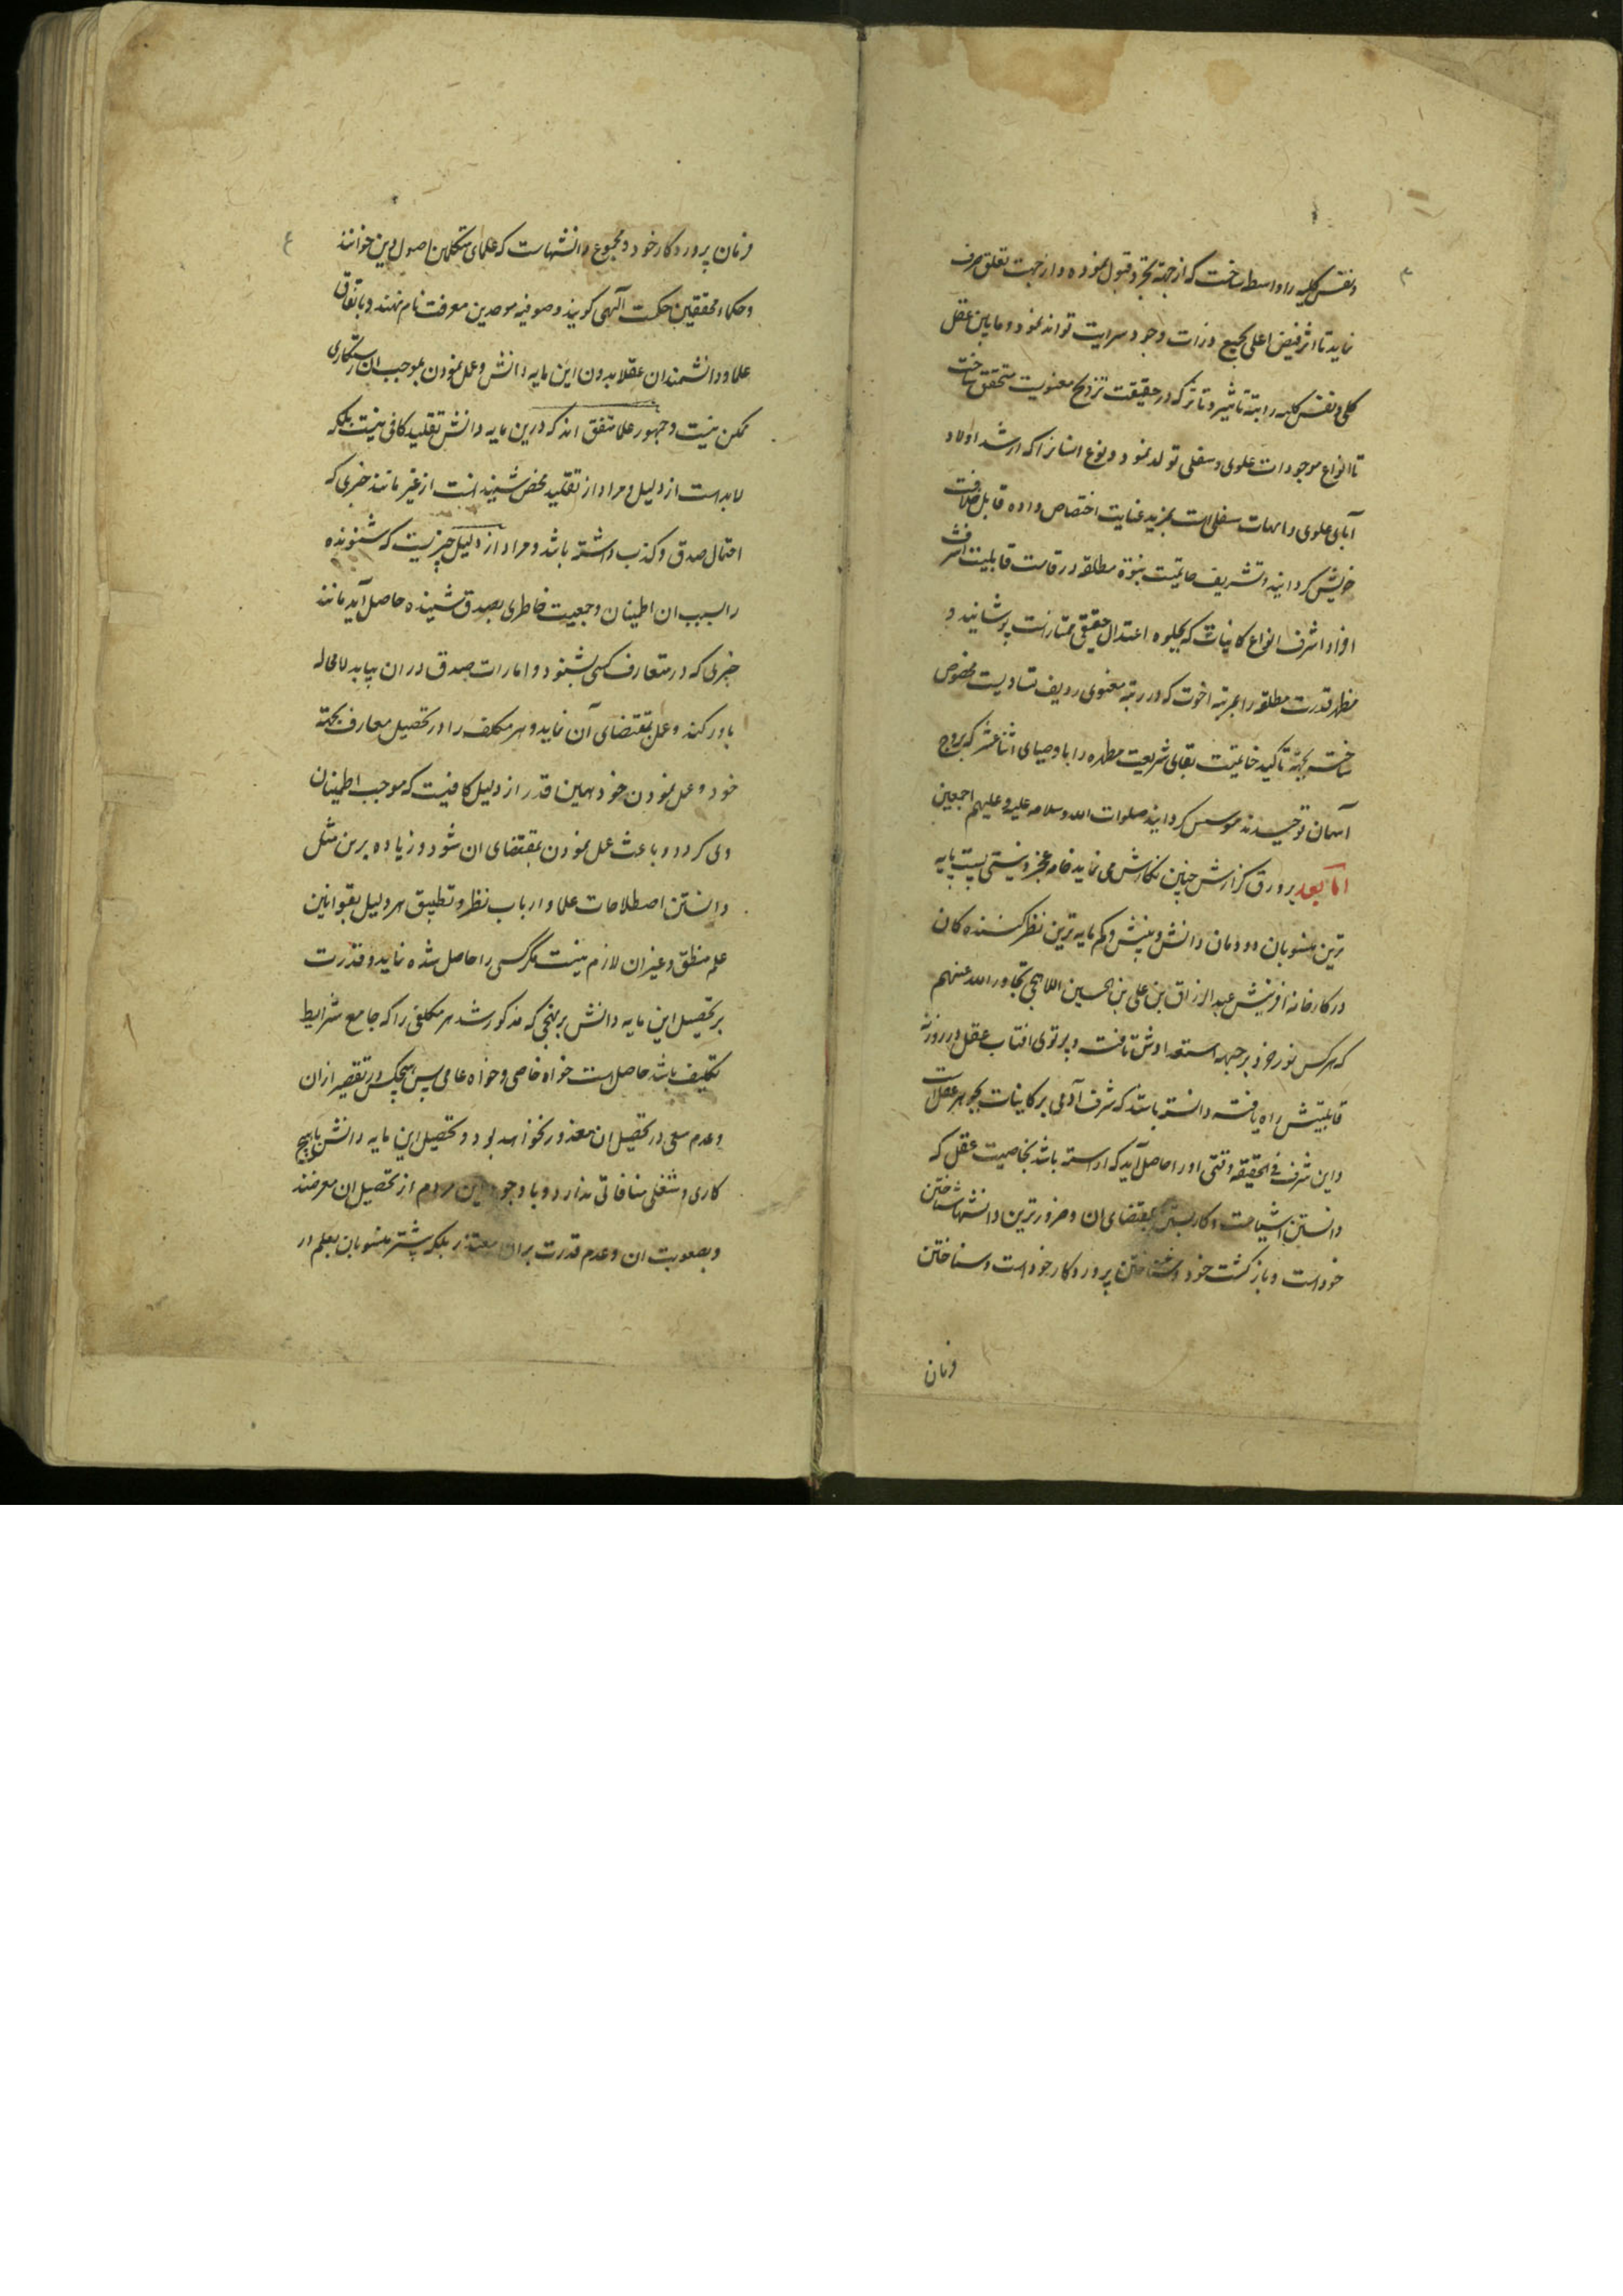 ۳
ونفس کلیه را واسطه ساخت که از جهة تجرد قبول نموده و از جهت تعلق صرف
نماید تا اثر فیض اعلی بجمیع ذرات وجود سرایت تواند نمود و مابین عقل
کلی و نفس کلیه رابتهٔ تاثیر و تاثر که در حقیقت تزویج معنویست متحقق ساخت
تا انواع موجودات علوی و سفلی تولد نمود و نوع انسانرا که ارشد اولاد
آبای علوی و امهات سفلی است بمزید عنایت اختصاص داده قابل خلافت
خویش کردانید و تشریف خاتمیت نبوة مطلقه در قامت قابلیت اشرف
افراد اشرف انواع کاینات که بجلوه اعتدال حقیقی ممتاز است پوشانید و
مظهر قدرت مطلقه را بمرتبه اخوت که در رتبه معنوی ردیف تساویست مخصوص
ساخت بجهة تاکید خاتمیت بقای شریعت مطهره را باوصیای اثنا عشر که بروج
آسمان توحیدند موسس کردانید صلوات الله وسلامه علیه وعلیهم اجمعین
اما بعد بر ورق گزارش چنین نگارش می نماید خامه عجز و نیستی پست پایه
ترین منسوبان دودمان دانش و بینش و کم مایه ترین نظر کننده کان
در کارخانه افرینش عبد الرزاق بن علی بن الحسین اللاهجی تجاوز الله عنهم
که هر کس نور خرد بر جبهه استعدادش تافت و پرتوی افتاب عقل در روزنه
قابلیتش راه یافته دانسته باشد که شرف آدمی بر کاینات بجوهر عقلست
و این شرف فی الحقیقه وقتی او را حاصل آید که اراسته باشد بخاصیت عقل که
دانستن اشیاست و کار بستن بمقتضای ان و ضرورترین دانشها شناختن
خود است و بازکشت خود و شناختن پروردکار خود است و شناختن
فرمان
٤
فرمان پروردکار خود و مجموع دانشهاست که علمای متکلمین اصول دین خوانند
و حکماء محققین حکمت آلهی کویند و صوفیه موحدین معرفت نام نهند و باتفاق
علما و دانشمندان عقلا بدون این مایه دانش و عمل نمودن بموجب ان رستکاری
ممکن نیست و جمهور علما متفق اند که درین مایه دانش تقلید کافی نیست بلکه
لابد است از دلیل و مراد از تقلید محض شنیدنست از غیر مانند خبری که
احتمال صدق و کذب داشته باشد و مراد از دلیل چیزیست که شنونده
را بسبب ان اطمینان و جمعیت خاطری بصدق شنیده حاصل آید مانند
خبری که در متعارف کسی بشنود و امارات صدق در ان بیابد لامحاله
باور کند و عمل بمقتضای آن نماید و هر مکلف را در تحصیل معارف بجهة
خود و عمل نمودن خود همین قدر از دلیل کافیست که موجب اطمینان
وی کردد و باعث عمل نمودن بمقتضای ان شود و زیاده برین مثل
دانستن اصطلاحات علما و ارباب نظر و تطبیق هر دلیل بقوانین
علم منطق و غیر ان لازم نیست مکر کسی را حاصل شده نماید و قدرت
بر تحصیل این مایه دانش بر نهجی که مذکور شد هر مکلفی را که جامع شرایط
تکلیف باشد حاصل است خواه خاصی و خواه عامی پس هیچکس در تقصیر ازان
و عدم سعی در تحصیل ان معذور نخواهد بود و تحصیل این مایه دانش با هیچ
کاری و شغلی منافاتی ندارد و با وجود این مردم از تحصیل ان معرضند
و بصعوبت ان و عدم قدرت بران معتذر بلکه بیشتر منسوبان بعلم در